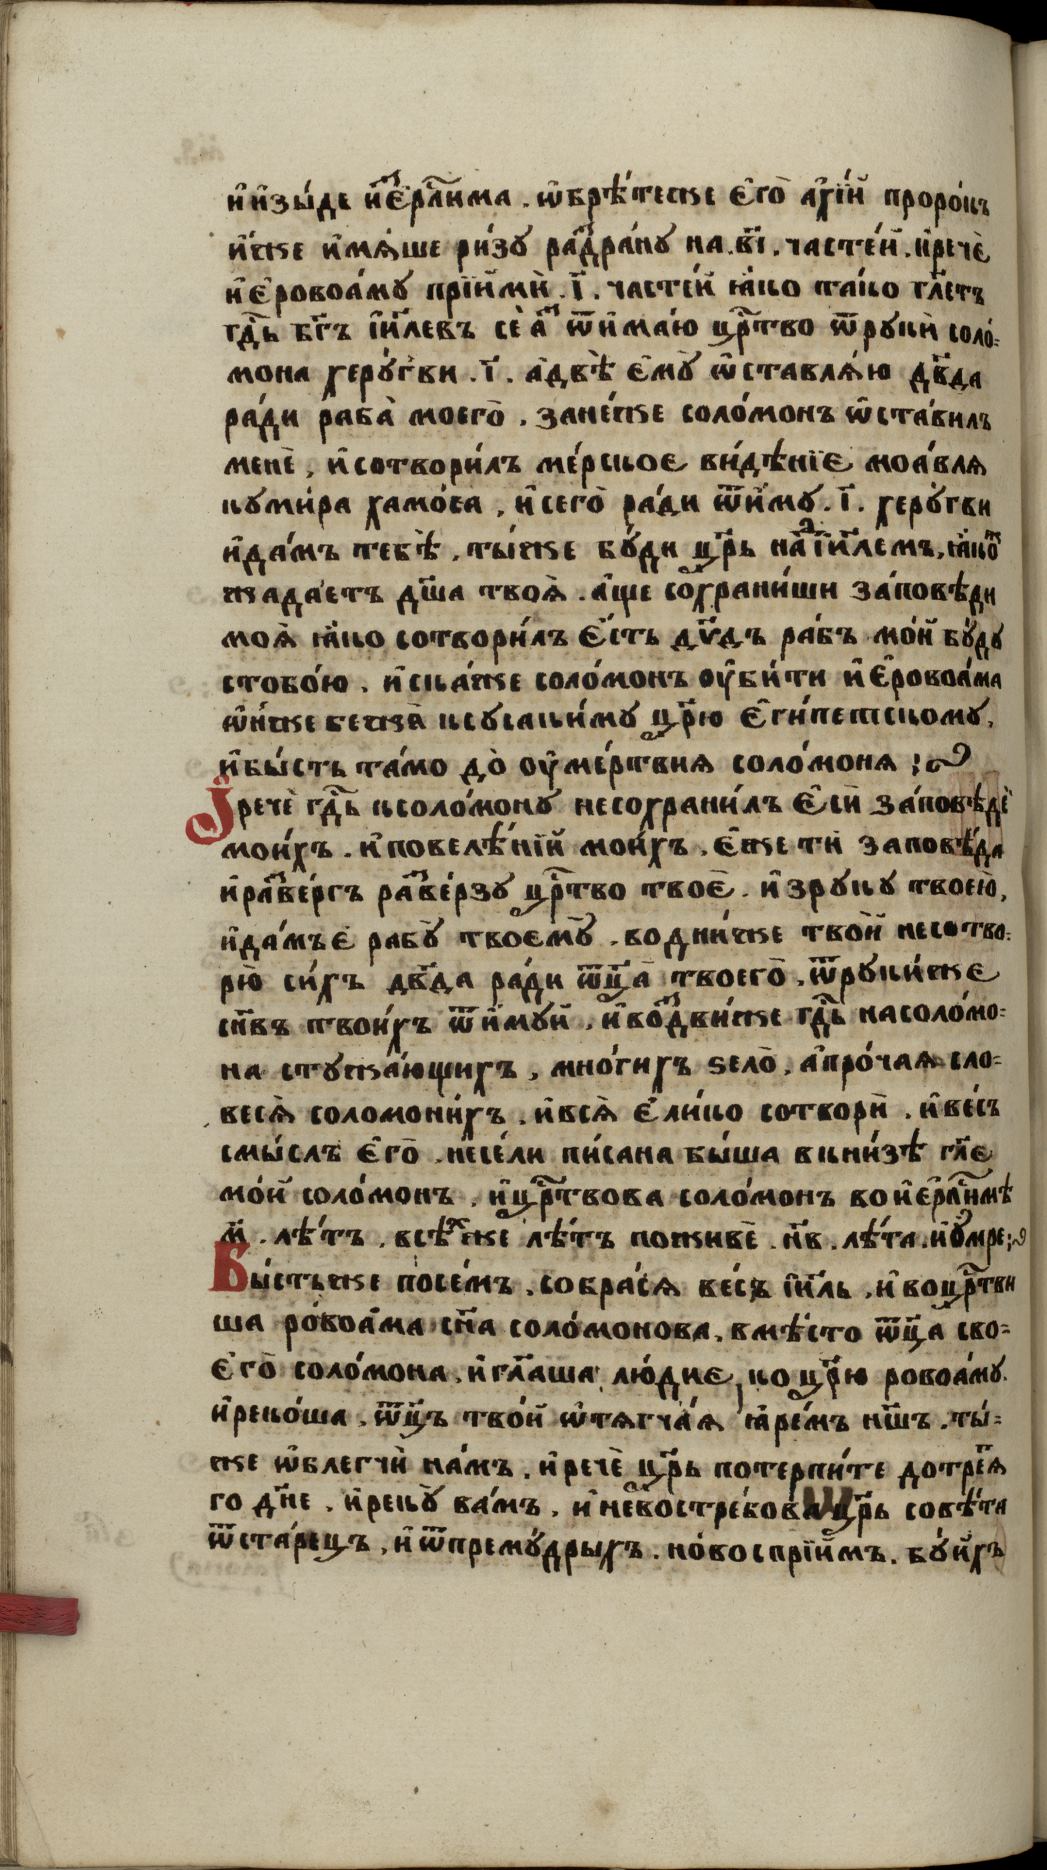 и҆изы́де и҆зъе҆рⷭ҇лима . ѡ҆брѣ́тежⸯе є҆го̀ а҆хі́й проро́къ
и҆́же и҆мѧ́ше ри́зу раздра́ну на . в҃і . часте́й . и҆речѐ
и҆є҆ровоа́му прїи҆мѝ . і҃ . часте́й ꙗ҆́ко та́ко гл҃етъ
гдⷭ҇ь бг҃ъ і҆и҃левъ сѐ а҆зъ ѿи҆ма́ю црⷭ҇тво ѿрукѝ соло́-
мона херу́гви . і҃ . а҆двѣ̀ є҆му̀ ѡ҆ставлѧ́ю дв҃да
ра́ди раба̀ моего̀ , зане́же соло́монъ ѡ҆ста́вилъ
менѐ , и҆сотвори́лъ ме́рское ви́дѣнїе моа́влѧ
куми́ра хамо́са , и҆сего̀ ра́ди ѿи҆му̀ . і҃ . херу́гви
и҆да́мъ тебѣ̀ , ты́же бу́ди цр҃ь на́дъ і҆и҃лемъ, ꙗ҆́коⷤ
жада́етъ дш҃а твоѧ̀ . а҆́ще сохрани́ши за́повѣди
моѧ̀ ꙗ҆́ко сотвори́лъ є҆́сть дв҃дъ ра́бъ мо́й бу́ду
стобо́ю . и҆ска́же соло́монъ оу҆би́ти и҆є҆ровоа́ма
ѡ҆́нже бежа̀ ксусаки́му цр҃ю є҆ги́петскому ,
и҆бы́сть та́мо до̀ оу҆ме́ртвиѧ соло́монѧ ;
И҆речѐ гдⷭ҇ь ксоло́мону несохрани́лъ є҆сѝ за́повѣдѐ
мои́хъ . и҆повелѣ́нїй мои́хъ , є҆́же тѝ заповѣ́да
и҆разве́ргъ разве́рзу црⷭ҇тво твоѐ . и҆зруку твоею̀ ,
и҆да́мъє҆ рабу̀ твоєму̀ . водни́же твоѝ несотво-
рю̀ си́хъ дв҃да ра́ди ѿц҃а̀ твоего̀ , ѿруки́же
сн҃въ твои́хъ ѿи҆му́й , и҆воздви́же гдⷭ҇ь насоло́мо-
на стужа́ющихъ , мно́гихъ ѕело̀ , а҆про́чаѧ сло-
весѧ̀ соломони́хъ , и҆всѧ̀ є҆ли́ко сотворѝ . и҆ве́сь
смы́слъ є҆го̀ . несе́ли пи́сана бы́ша вкни́зѣ гл҃е
мо́й соло́монъ , и҆црⷭ҇твова соло́монъ вои҆єрⷭ҇ли́мѣ
м҃ . лѣ́тъ . всѣ́хже лѣ́тъ поживѐ . н҃в . лѣ́та . и҆у́мре ;
Бы́стьже посе́мъ , собра́сѧ ве́сь і҆и҃ль , и҆воцрⷭ҇тви
ша ро́воа́ма сн҃а соло́монова , вмѣ́сто ѿц҃а сво-
є҆го̀ соло́мона , и҆гл҃аша лю́дие , ко цр҃ю ровоа́му .
и҆реко́ша . ѿц҃ъ тво́й ѡ҆тѧгча́ѧ ꙗ҆ре́мъ нш҃ъ . ты́-
же ѡ҆блегчѝ на́мъ . и҆речѐ цр҃ь потерпи́те дотре́тїѧ
го дн҃е . и҆реку̀ ва́мъ , и҆невостре́бова цр҃ь совѣ́та
ѿста́рецъ , и҆ѿпрему́дрыхъ . но́воспрїи҆мъ . бу́йхъ